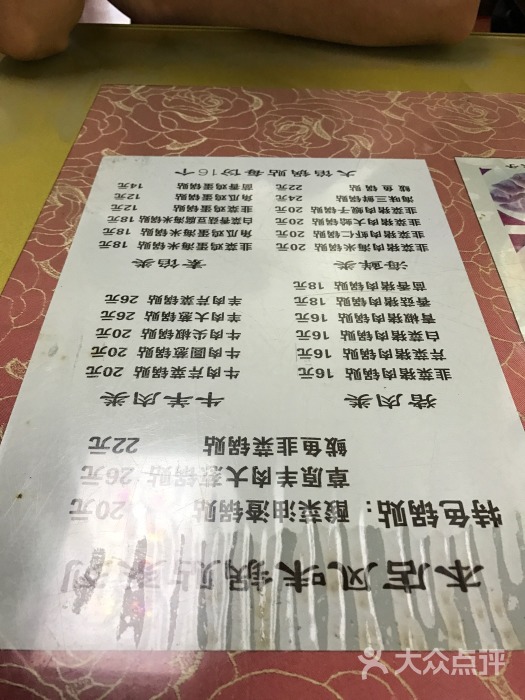 本店风味锅贴系列
特色锅贴：酸菜油渣锅贴 20元
草原羊肉大葱锅贴 26元
鲅鱼韭菜锅贴 22元
猪肉类
韭菜猪肉锅贴 16元
芹菜猪肉锅贴 16元
白菜猪肉锅贴 16元
青椒猪肉锅贴 16元
香菇猪肉锅贴 18元
茴香猪肉锅贴 18元
牛羊肉类
牛肉芹菜锅贴 20元
牛肉圆葱锅贴 20元
牛肉尖椒锅贴 20元
羊肉大葱锅贴 26元
羊肉芹菜锅贴 26元
海鲜类
韭菜猪肉海米锅贴 20元
韭菜猪肉虾仁锅贴 20元
韭菜猪肉大蛤锅贴 20元
韭菜猪肉蚬子锅贴 20元
海味三鲜锅贴 24元
鲅鱼锅贴 22元
素馅类
韭菜鸡蛋海米锅贴 18元
角瓜鸡蛋海米锅贴 18元
白菜香菇豆腐海米锅贴 18元
韭菜鸡蛋锅贴 12元
角瓜鸡蛋锅贴 12元
茴香鸡蛋锅贴 14元
大馅锅贴每份16个
大众点评